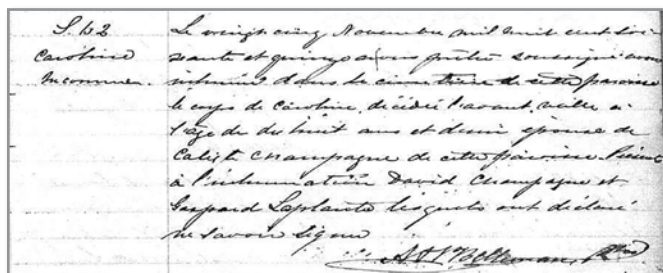 S. 42
Caroline
Inconnue.
Le vingt cinq Novembre mil huit cent soi-
xante et quinze nous prêtre soussigné avons
inhumé dans le cimetière de cette paroisse
le corps de Caroline, décédée l'avant veille à
l'âge de dix huit ans et demi épouse de
Calixte Champagne de cette paroisse. Présents
à l'inhumation David Champagne et
Gaspard Laplante lesquels ont déclaré
ne savoir signer
Ptre